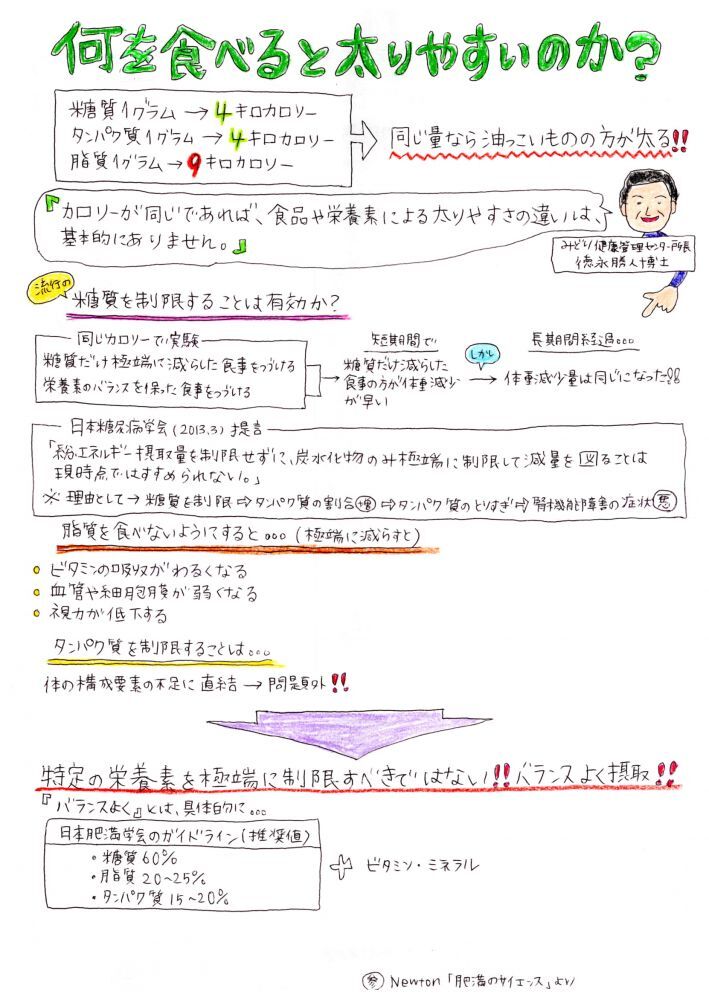 何を食べると太りやすいのか?
糖質1グラム→4キロカロリー
タンパク質1グラム→4キロカロリー
脂質1グラム→9キロカロリー
同じ量なら油っこいものの方が太る!!
『カロリーが同じであれば、食品や栄養素による太りやすさの違いは、
基本的にありません。』
みどり健康管理センター所長
徳永勝人博士
流行の
糖質を制限することは有効か?
同じカロリーで実験
糖質だけ極端に減らした食事をつづける
栄養素のバランスを保った食事をつづける
短期間で
糖質だけ減らした
食事の方が体重減少
が早い
しかし
→
長期間経過。。。
体重減少量は同じになった!!
日本糖尿病学会(2013.3)提言
「総エネルギー摂取量を制限せずに、炭水化物のみ極端に制限して減量を図ることは
現時点ではすすめられない。」
※理由として→糖質を制限⇨タンパク質の割合増⇨タンパク質のとりすぎ⇨腎機能障害の症状悪
脂質を食べないようにすると。。。(極端に減らすと)
・ビタミンの吸収がわるくなる
・血管や細胞膜が弱くなる
・視力が低下する
タンパク質を制限することは。。。
体の構成要素の不足に直結→問題外!!
特定の栄養素を極端に制限すべきではない!!バランスよく摂取!!
『バランスよく』とは、具体的に。。。
日本肥満学会のガイドライン(推奨値)
・糖質60%
・脂質20~25%
・タンパク質15~20%
+ ビタミン・ミネラル
参 Newton「肥満のサイエンス」より